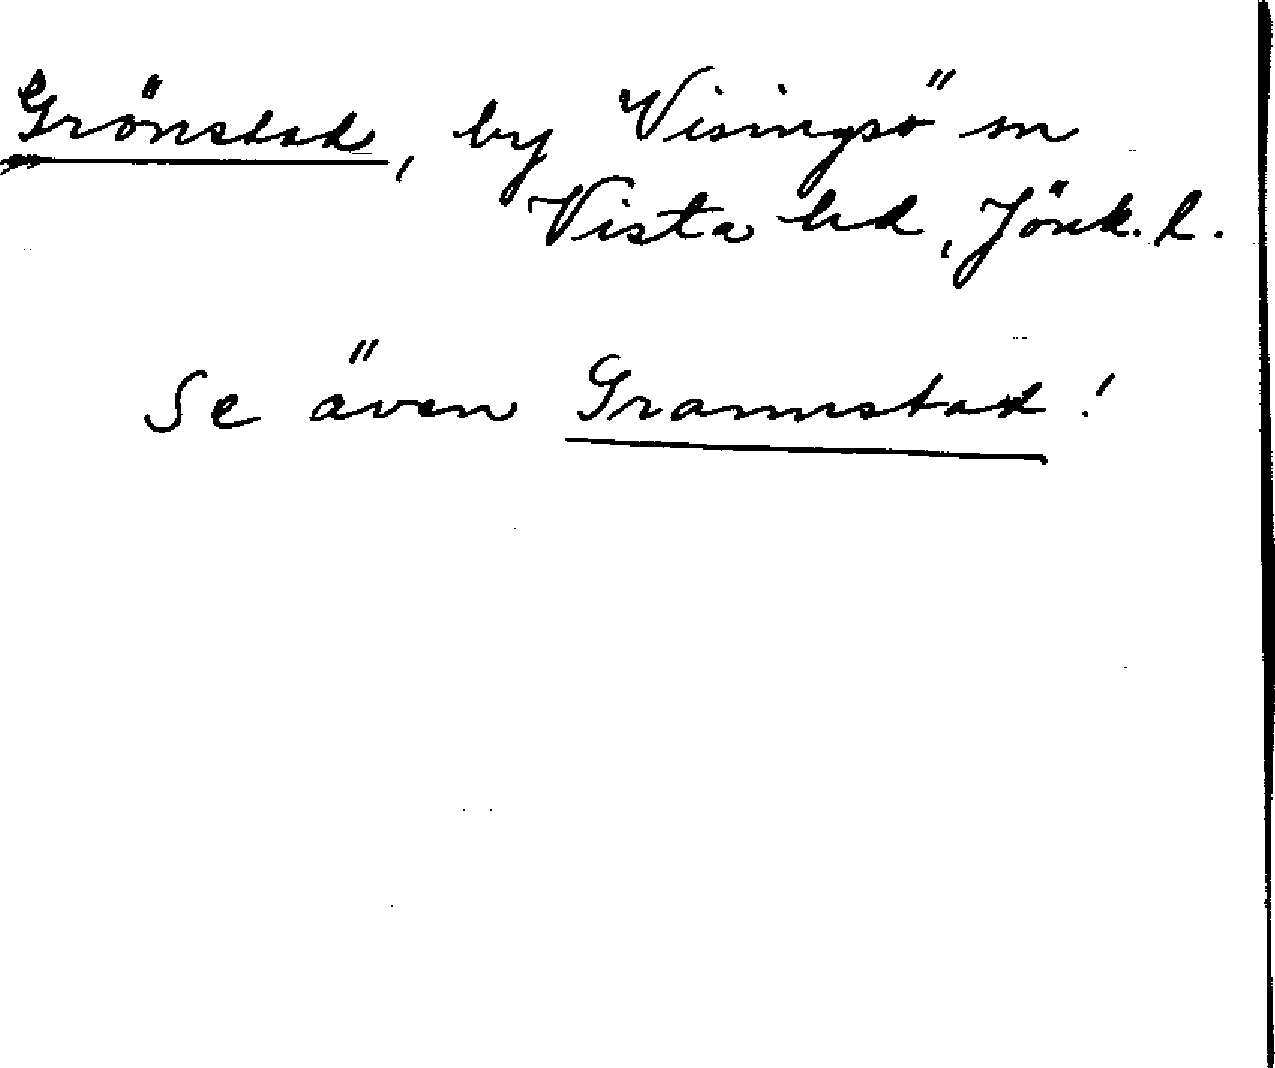 Grönstad, by Visingsö sn
Vista hd, Jönk. l.
Se även Grannstad!